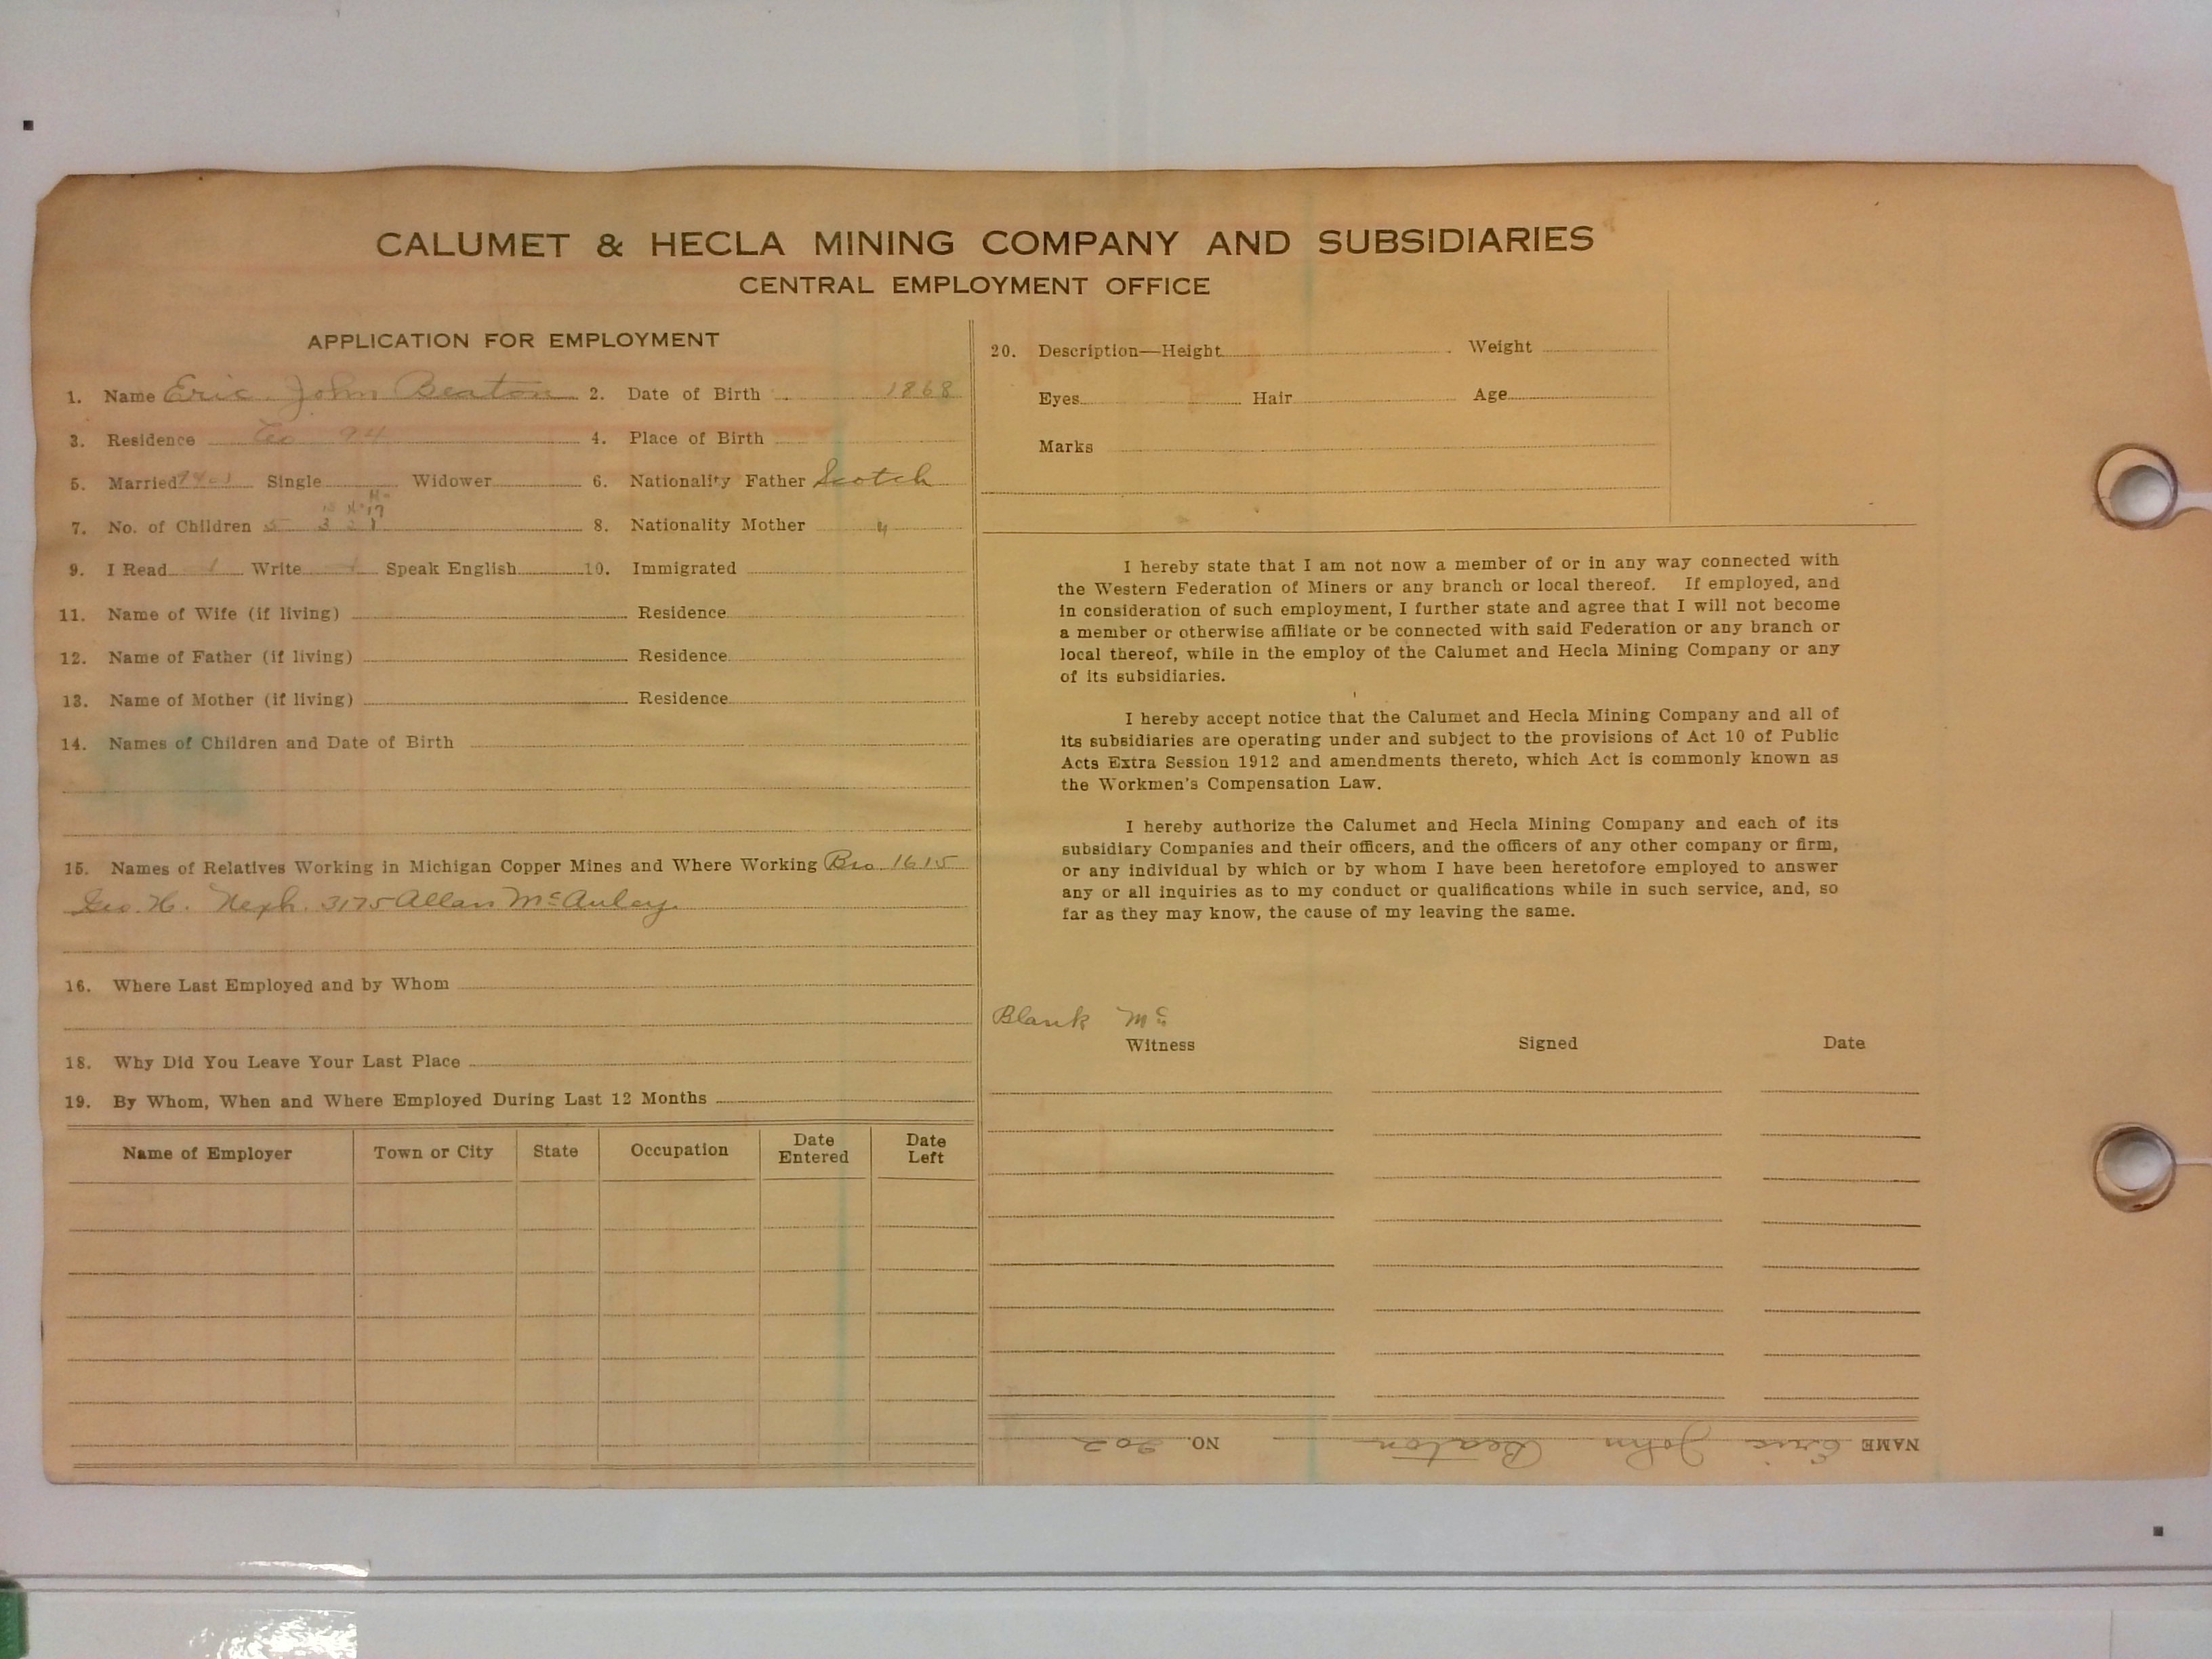 CALUMET & HECLA MINING COMPANY AND SUBSIDIARIES
CENTRAL EMPLOYMENT OFFICE
APPLICATION FOR EMPLOYMENT
1. Name Eric John Beaton 2. Date of Birth 1868
3. Residence 94 4. Place of Birth
5. Married Single Widower 6. Nationality Father Scotch
7. No. of Children 5 3 2 1 8. Nationality Mother "
9. I Read 1 Write 1 Speak English 10. Immigrated
11. Name of Wife (if living) Residence
12. Name of Father (if living) Residence
13. Name of Mother (if living) Residence
14. Names of Children and Date of Birth
15. Names of Relatives Working in Michigan Copper Mines and Where Working Bro. 1615
Geo. H. Neph. 3175 Allan McAuley
16. Where Last Employed and by Whom
18. Why Did You Leave Your Last Place
19. By Whom, When and Where Employed During Last 12 Months
Name of Employer Town or City State Occupation Date Entered Date Left
20. Description—Height Weight
Eyes Hair Age
Marks
I hereby state that I am not now a member of or in any way connected with
the Western Federation of Miners or any branch or local thereof. If employed, and
in consideration of such employment, I further state and agree that I will not become
a member or otherwise affiliate or be connected with said Federation or any branch or
local thereof, while in the employ of the Calumet and Hecla Mining Company or any
of its subsidiaries.
I hereby accept notice that the Calumet and Hecla Mining Company and all of
its subsidiaries are operating under and subject to the provisions of Act 10 of Public
Acts Extra Session 1912 and amendments thereto, which Act is commonly known as
the Workmen's Compensation Law.
I hereby authorize the Calumet and Hecla Mining Company and each of its
subsidiary Companies and their officers, and the officers of any other company or firm,
or any individual by which or by whom I have been heretofore employed to answer
any or all inquiries as to my conduct or qualifications while in such service, and, so
far as they may know, the cause of my leaving the same.
Blank Mc
Witness Signed Date
NAME Eric John Beaton NO. 202